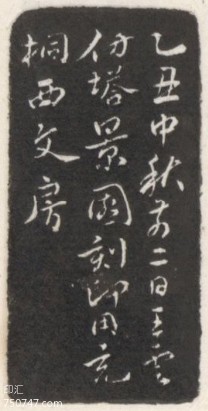 乙丑中秋前二日王云
仿塔景园刻即用充
桐西文房
印汇
750747.com